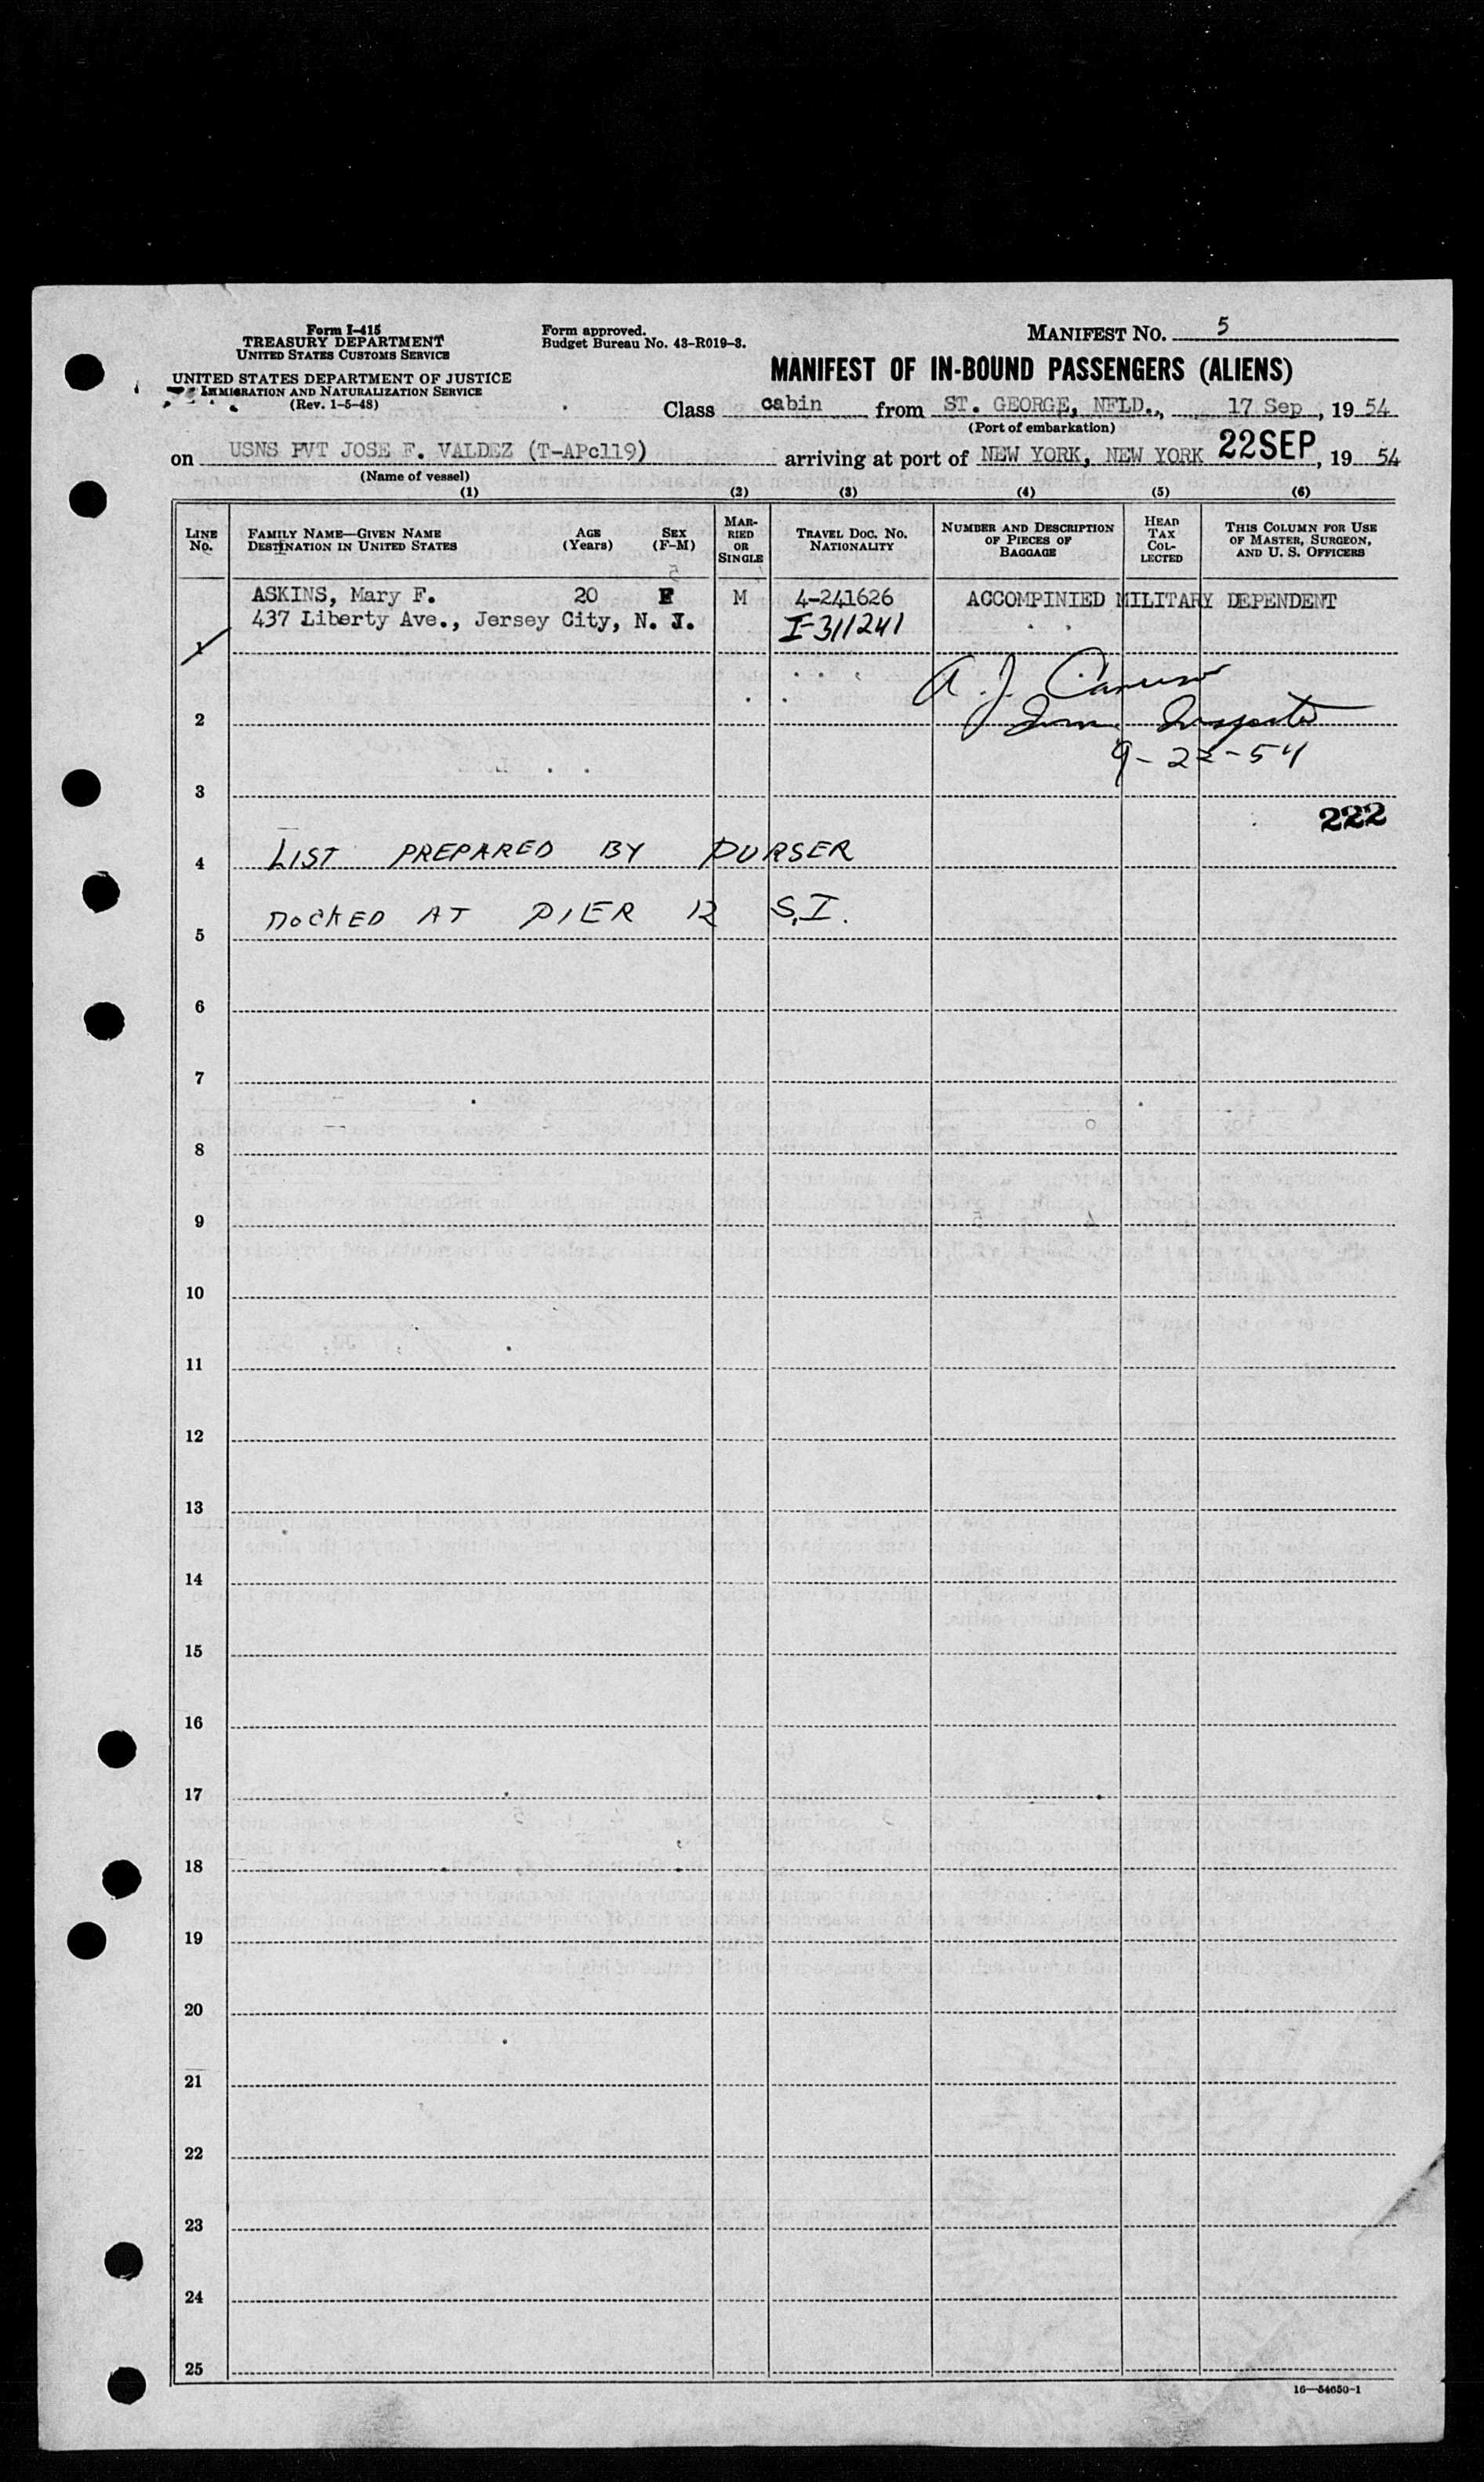 Form I-415
TREASURY DEPARTMENT
UNITED STATES CUSTOMS SERVICE
UNITED STATES DEPARTMENT OF JUSTICE
IMMIGRATION AND NATURALIZATION SERVICE
(Rev. 1-5-48)
Form approved.
Budget Bureau No. 43-R019-3.
MANIFEST NO. 5
MANIFEST OF IN-BOUND PASSENGERS (ALIENS)
Class cabin from ST. GEORGE, NFLD., 17 Sep, 19 54
(Port of embarkation)
on USNS PVT JOSE F. VALDEZ (T-APc119) arriving at port of NEW YORK, NEW YORK 22 SEP, 19 54
(Name of vessel)
(1) (2) (3) (4) (5) (6)
LINE NO. FAMILY NAME—GIVEN NAME DESTINATION IN UNITED STATES AGE (Years) SEX (F-M) MARRIED OR SINGLE TRAVEL DOC. NO. NATIONALITY NUMBER AND DESCRIPTION OF PIECES OF BAGGAGE HEAD TAX COLLECTED THIS COLUMN FOR USE OF MASTER, SURGEON, AND U. S. OFFICERS
ASKINS, Mary F. 20 F M 4-241626 ACCOMPINIED MILITARY DEPENDENT
437 Liberty Ave., Jersey City, N. J. I-311241
1
A. J.
2
Imm. Inspector
9-22-54
3
222
4 LIST PREPARED BY PURSER
5 DOCKED AT PIER 12 S.I.
6
7
8
9
10
11
12
13
14
15
16
17
18
19
20
21
22
23
24
25
16—54650-1